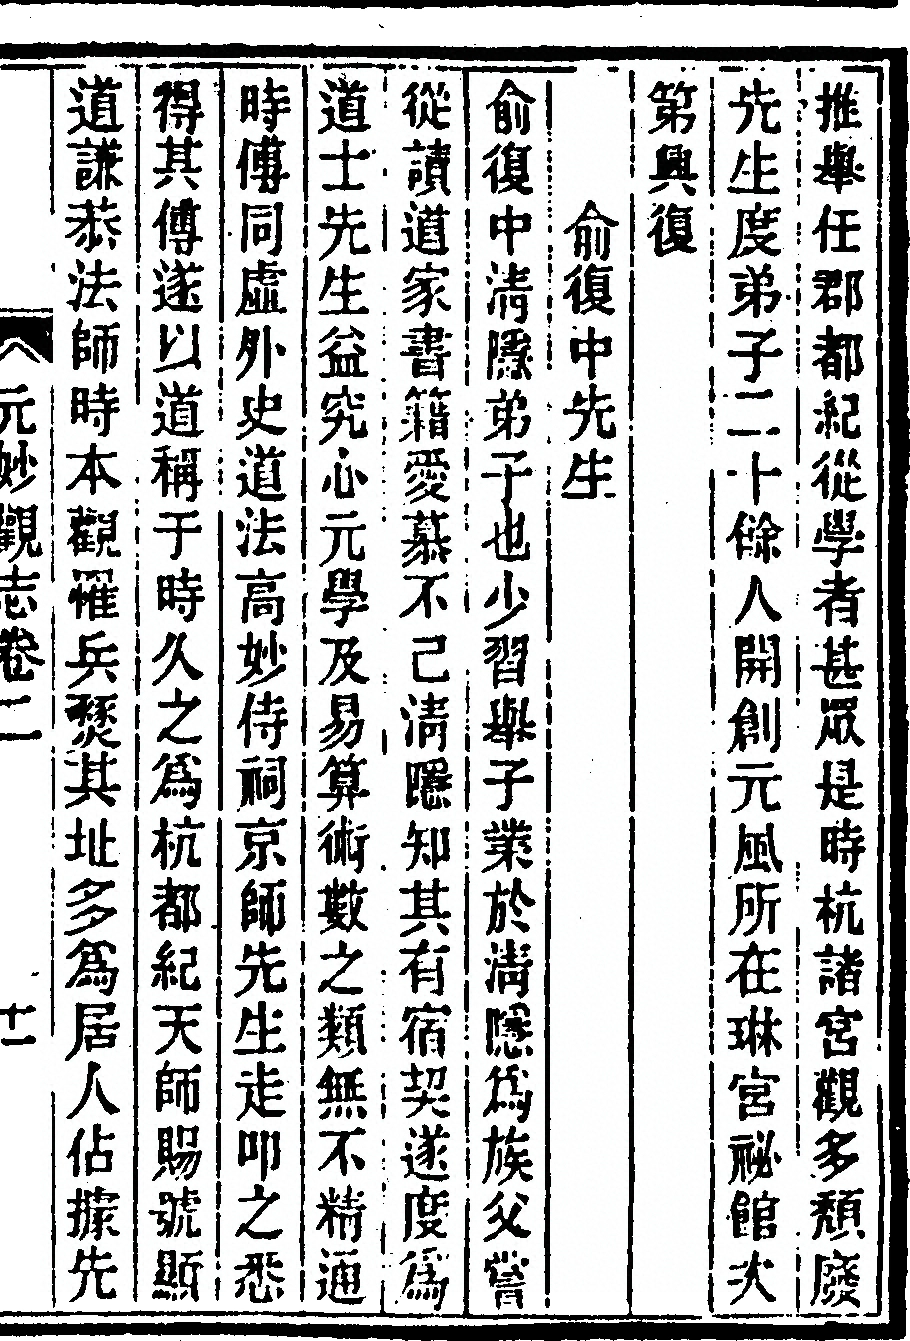 推舉任郡都紀從學者甚眾是時杭諸宮觀多頽廢
先生度弟子二十餘人開創元風所在琳宮祕館次
第興復
俞復中先生
俞復中清隱弟子也少習舉子業於清隱爲族父嘗
從讀道家書籍愛慕不已清隱知其有宿契遂度爲
道士先生益究心元學及易算術數之類無不精通
時傅同虛外史道法高妙侍祠京師先生走叩之悉
得其傳遂以道稱于時久之爲杭都紀天師賜號顯
道謙恭法師時本觀罹兵燹其址多爲居人佔據先
元妙觀志卷二
十一